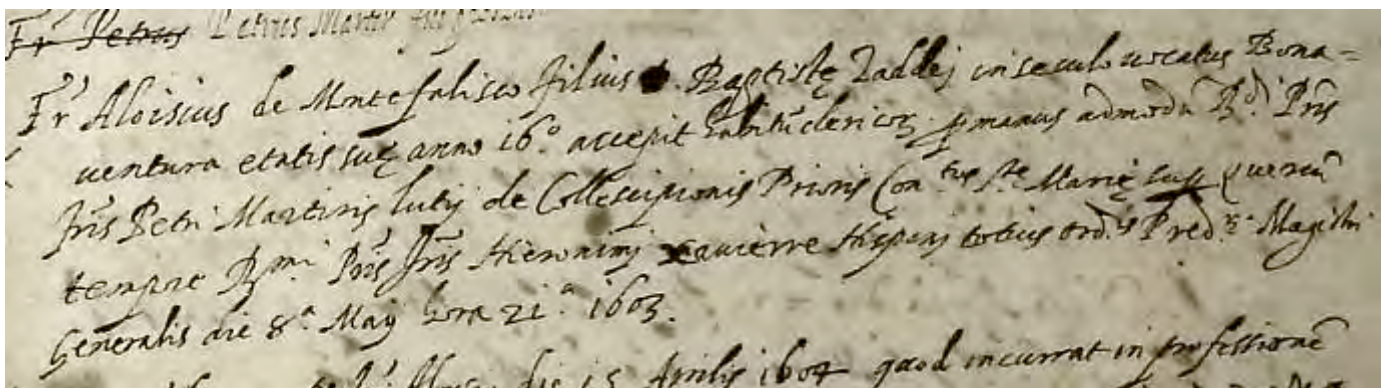 Fr Petrus Petrus Martir
Fr Aloisius de Montefalisco filius D. Baptistę Taddej in seculo vocatus Bona=
ventura etatis suę anno 16.º accepit habitũ clericoꝝ p manus admodũ R.di Pris
fris Petri Martiris Lutij de Collescipionis Prioris Con.tus S.te Marię sup Quercũ
tempore R.mi Pris fris Hieronimj Xavierre Hispanj totius ord.is Pred.rũ Magistri
Generalis die 8.ª Maij hora 21.ª 1603.
die 15 Aprilis 1604 quod incurrat in professionẽ